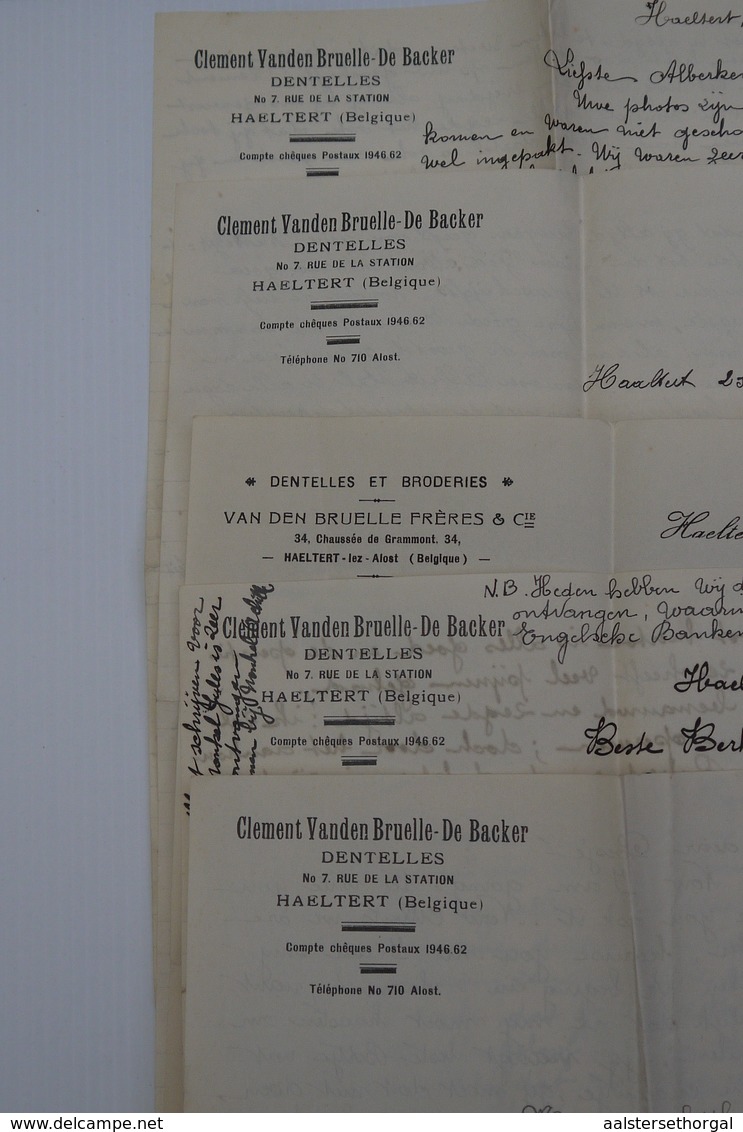 Haeltert,
Clement Vanden Bruelle-De Backer
DENTELLES
No 7. RUE DE LA STATION
HAELTERT (Belgique)
Compte chêques Postaux 1946.62
Liefste Alberke
Uwe photos zijn
komen en waren niet gescho
wel ingepakt. Wij waren zeer
Clement Vanden Bruelle-De Backer
DENTELLES
No 7. RUE DE LA STATION
HAELTERT (Belgique)
Compte chêques Postaux 1946.62
Téléphone No 710 Alost.
Haaltert 25
DENTELLES ET BRODERIES
VAN DEN BRUELLE FRÈRES & CIE
34, Chaussée de Grammont. 34,
— HAELTERT-lez-Alost (Belgique) —
Haelte
N.B. Heden hebben wij d
ontvangen, waarm
Engelsche Banken
t schrijven voor
nonkel Jules is zeer
Clement Vanden Bruelle-De Backer
DENTELLES
No 7. RUE DE LA STATION
HAELTERT (Belgique)
Compte chêques Postaux 1946.62
Hael
Beste Bert
Clement Vanden Bruelle-De Backer
DENTELLES
No 7. RUE DE LA STATION
HAELTERT (Belgique)
Compte chêques Postaux 1946.62
Téléphone No 710 Alost.
© www.delcampe.net
aalstersethorgal